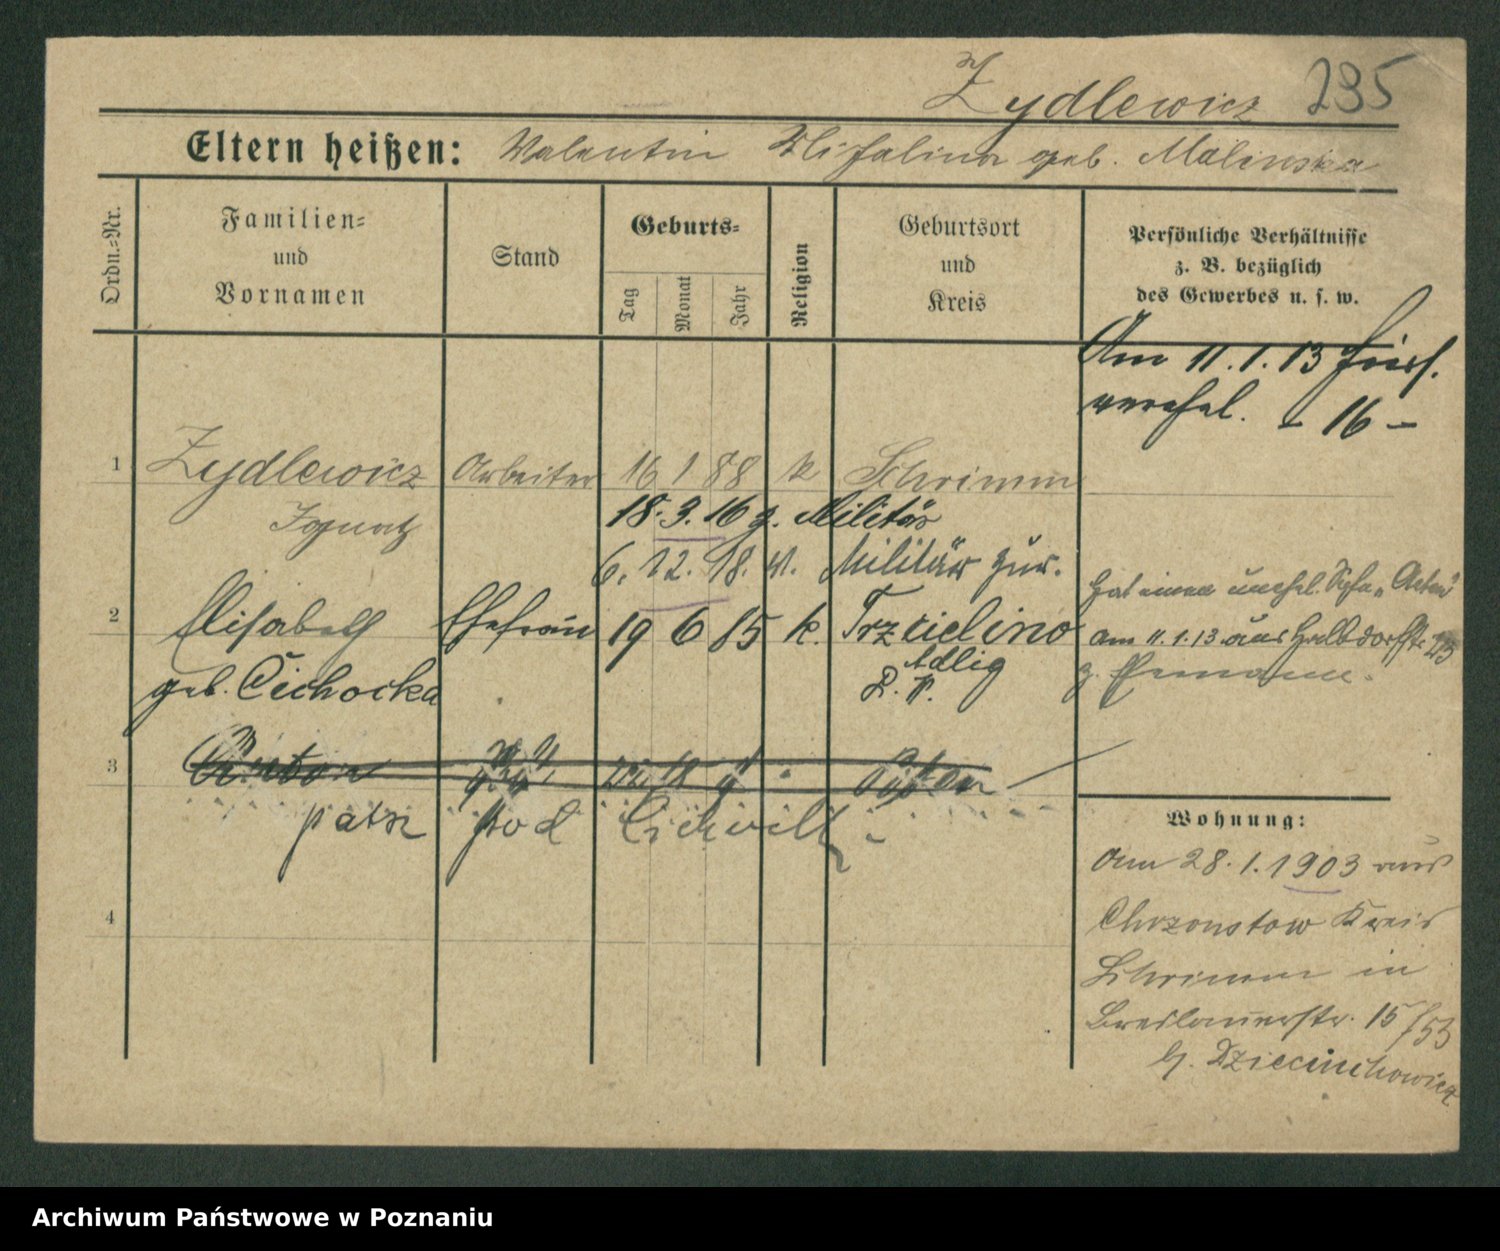 Zydlewicz 235
Eltern heißen: Valentin Michalina geb. Malinska
Ordn.-Nr.
Familien-
und
Vornamen
Stand
Geburts-
Tag
Monat
Jahr
Religion
Geburtsort
und
Kreis
Persönliche Verhältnisse
z. B. bezüglich
des Gewerbes u. s. w.
Am 11.1.13 hier
verehel. - 16 -
1 Zydlewicz Arbeiter 16 1 88 k Schrimm
Ignatz
18. 3. 16 z. Militär
6. 12. 18. v. Militär zur.
2 Elisabeth Ehefrau 19 6 85 k. Trzcielino
geb. Cichocka
Adlig
P. W.
Hat einen unehel. Sohn "Anton"
am 11.1.13. aus Halbdorfstr.
3 Anton
patrz pod Cichocki
4
Wohnung:
Am 28.1.1903 aus
Chrzonstow Kreis
Schrimm in
Breslauerstr. 15/53
b. Dziecinchowicz
Archiwum Państwowe w Poznaniu